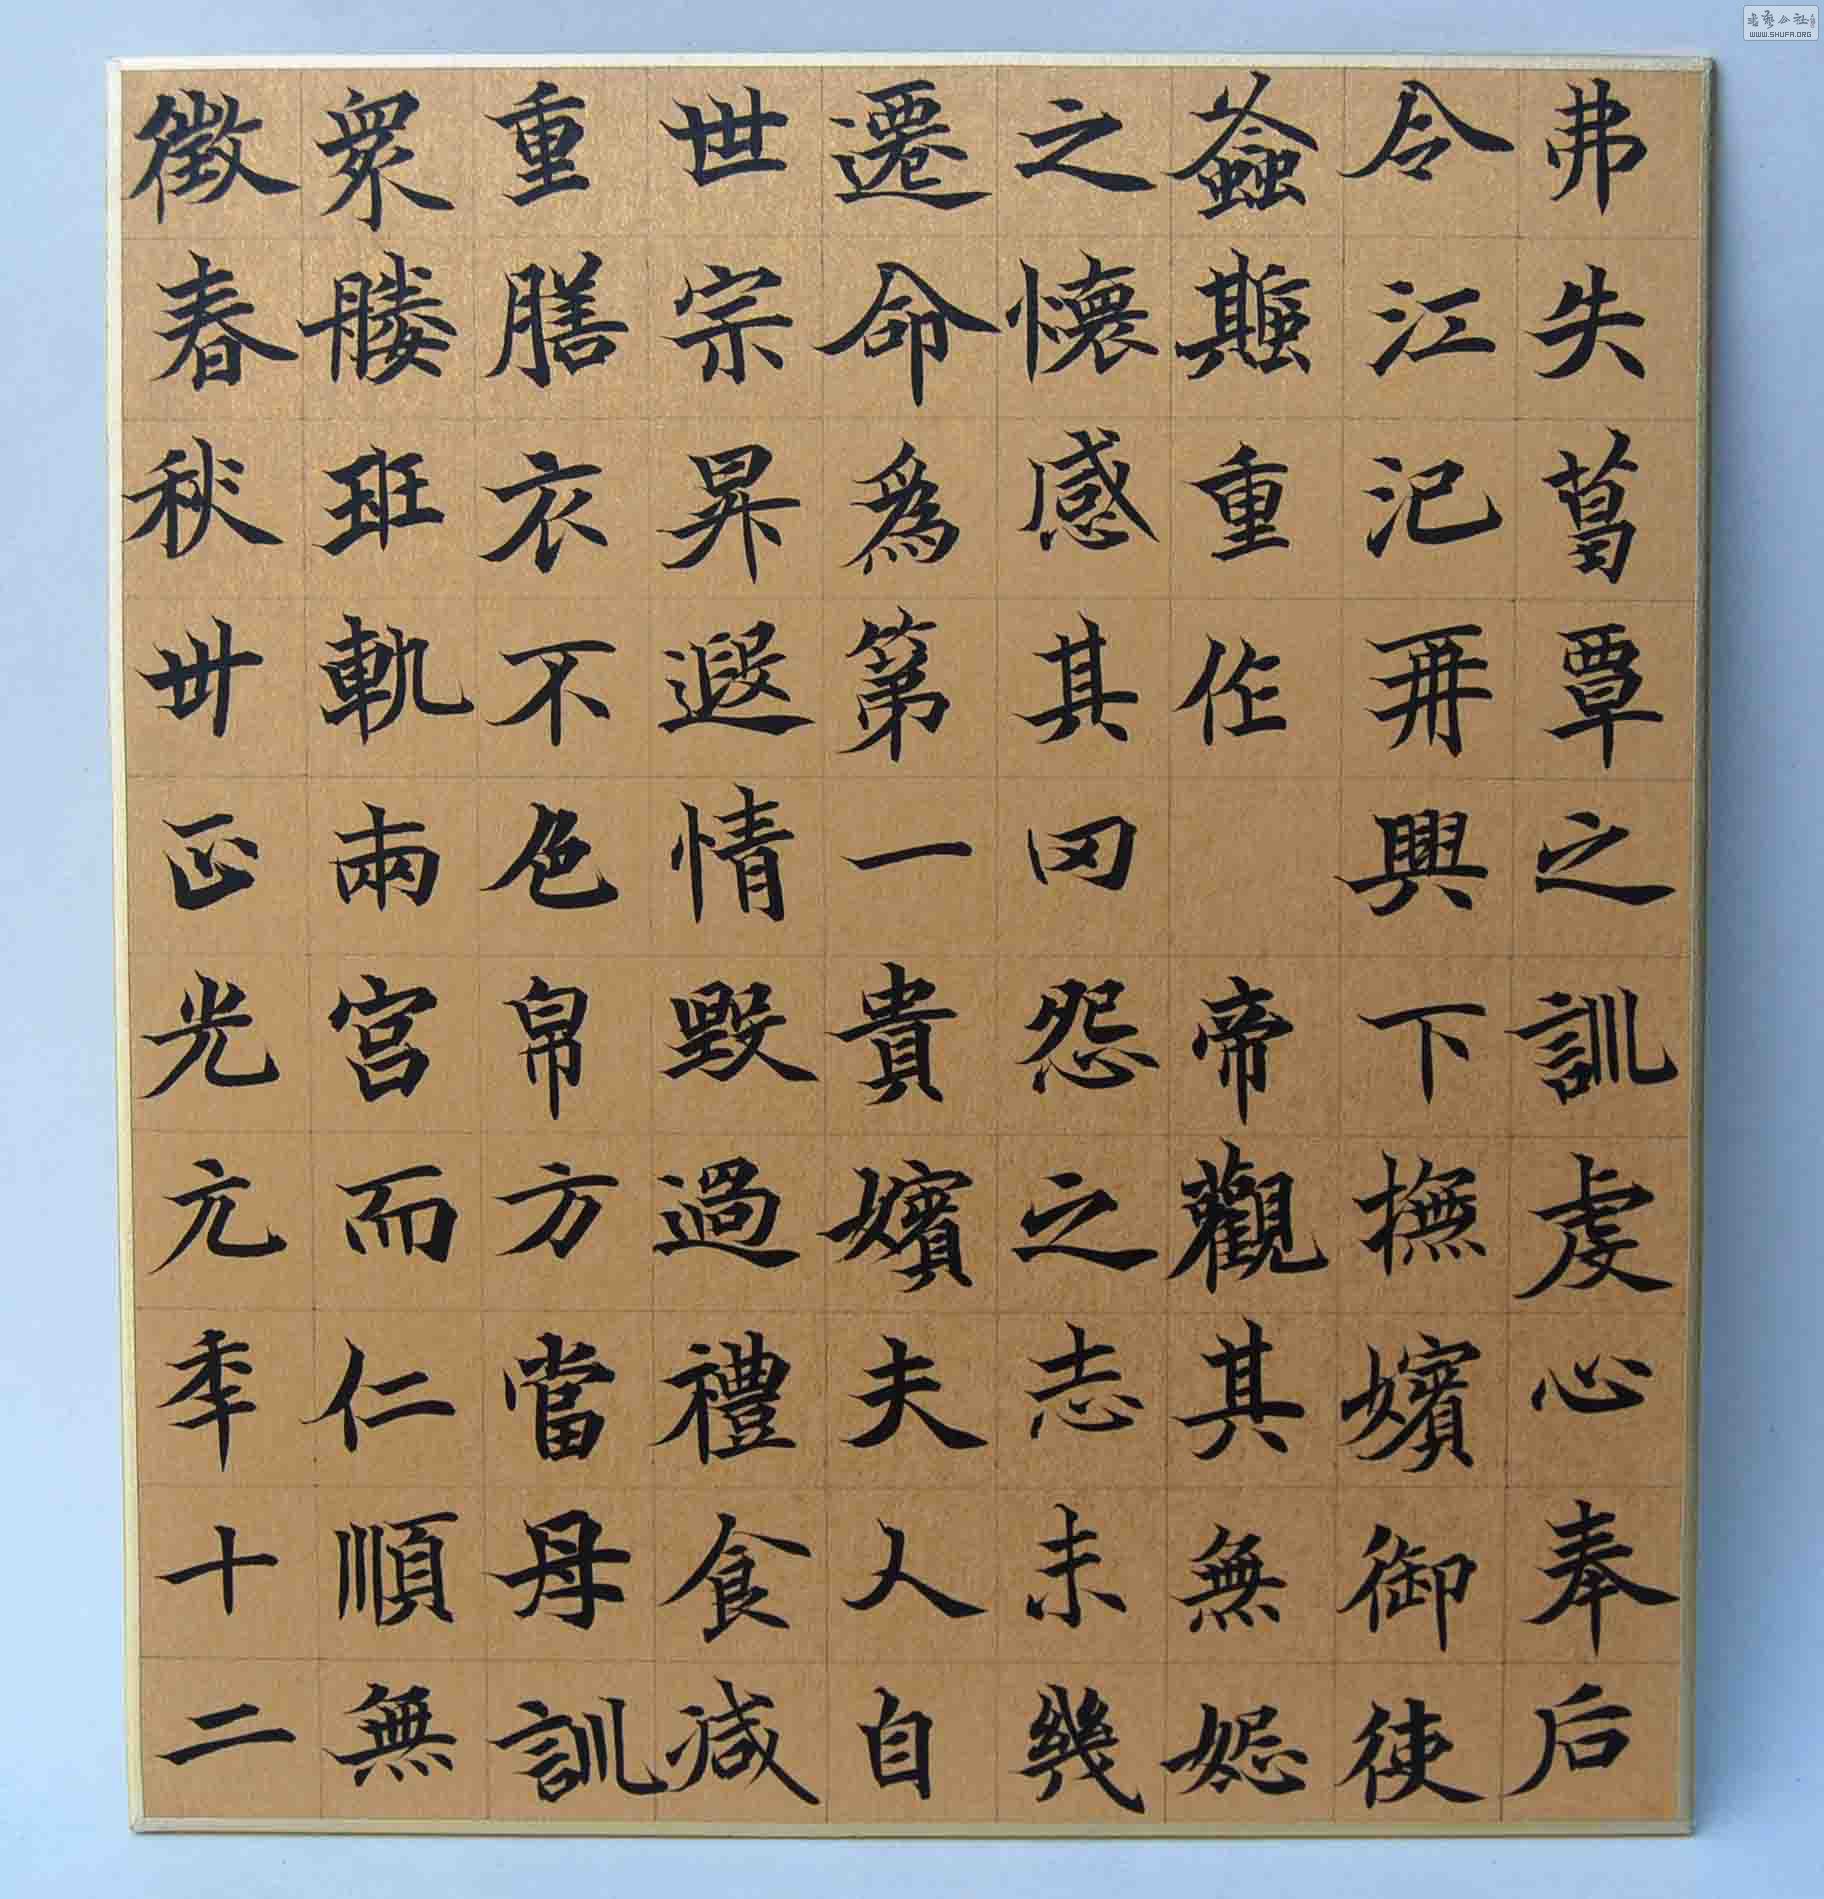 弗失葛覃之訓虔心奉后
令江汜再興下撫嬪御使
螽斯重作 帝觀其無妬
之懷感其罔怨之志未幾
遷命為第一貴嬪夫人自
世宗昇遐情毀過禮食減
重膳衣不色帛方當母訓
衆艛班軌兩宮而仁順無
徵春秋卅正光元年十二
書藝公社
WWW.SHUFA.ORG